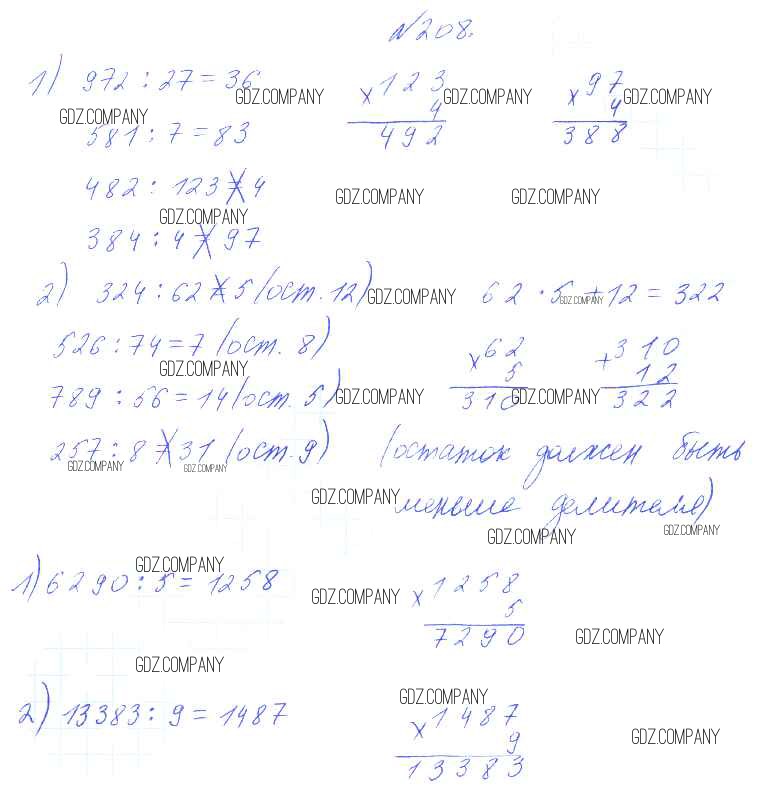 №208.
1) 972 : 27 = 36
× 123
4
492
× 97
4
388
GDZ.COMPANY GDZ.COMPANY GDZ.COMPANY
GDZ.COMPANY
581 : 7 = 83
482 : 123 ≠ 4
GDZ.COMPANY GDZ.COMPANY
GDZ.COMPANY
384 : 4 ≠ 97
2) 324 : 62 ≠ 5 (ост. 12) GDZ.COMPANY 62 · 5 + 12 = 322
GDZ.COMPANY
526 : 74 = 7 (ост. 8)
× 62
5
310
+ 310
12
322
GDZ.COMPANY
789 : 56 = 14 (ост. 5) GDZ.COMPANY GDZ.COMPANY
257 : 8 ≠ 31 (ост. 9) (остаток должен быть
GDZ.COMPANY GDZ.COMPANY
GDZ.COMPANY меньше делителя)
GDZ.COMPANY GDZ.COMPANY
GDZ.COMPANY
1) 6290 : 5 = 1258 GDZ.COMPANY
× 1258
5
7290
GDZ.COMPANY
GDZ.COMPANY
GDZ.COMPANY
2) 13383 : 9 = 1487
× 1487
9
13383
GDZ.COMPANY